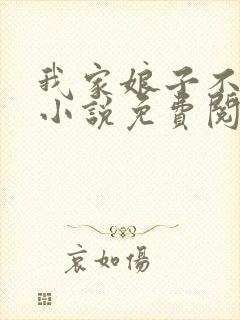 我家娘子不
小説免費閱
哀如傷